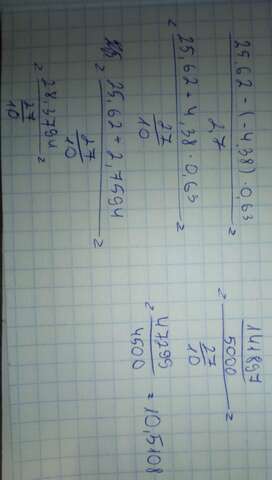 25.62 - (-4,38) · 0,63
2,7
=
= 25,62 + 4,38 · 0,63
27
10
=
= 25,62 + 2,7594
27
10
=
= 28,3794
27
10
=
141897
5000
27
10
=
= 47299
4500
= 10,5108